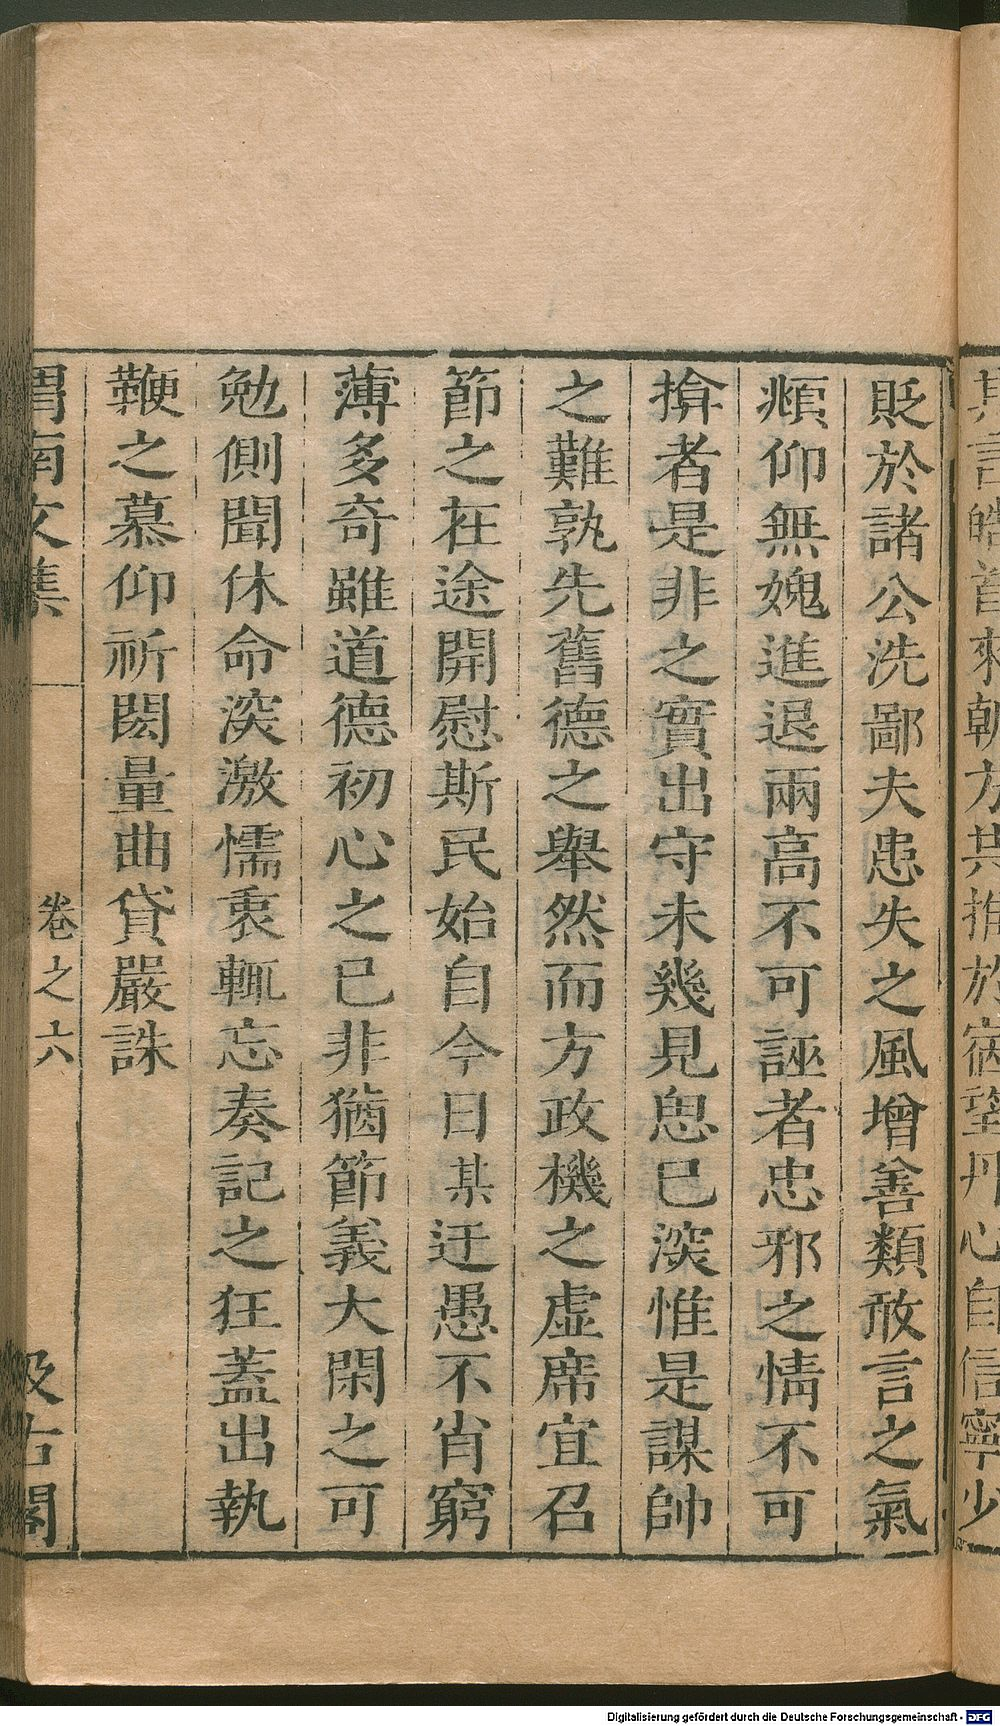 其言皓首來朝方共推於宿望丹心自信寧少
貶於諸公洗鄙夫患失之風增善類敢言之氣
頫仰無媿進退兩高不可誣者忠邪之情不可
揜者是非之實出守未幾見思已深惟是謀帥
之難孰先舊德之舉然而方政機之虛席宜召
節之在途開慰斯民始自今日某迂愚不肖窮
薄多奇雖道德初心之已非猶節義大閑之可
勉側聞休命深激懦衷輒忘奏記之狂蓋出執
鞭之慕仰祈閎量曲貸嚴誅
渭南文集 卷之六 汲古閣
Digitalisierung gefördert durch die Deutsche Forschungsgemeinschaft - DFG